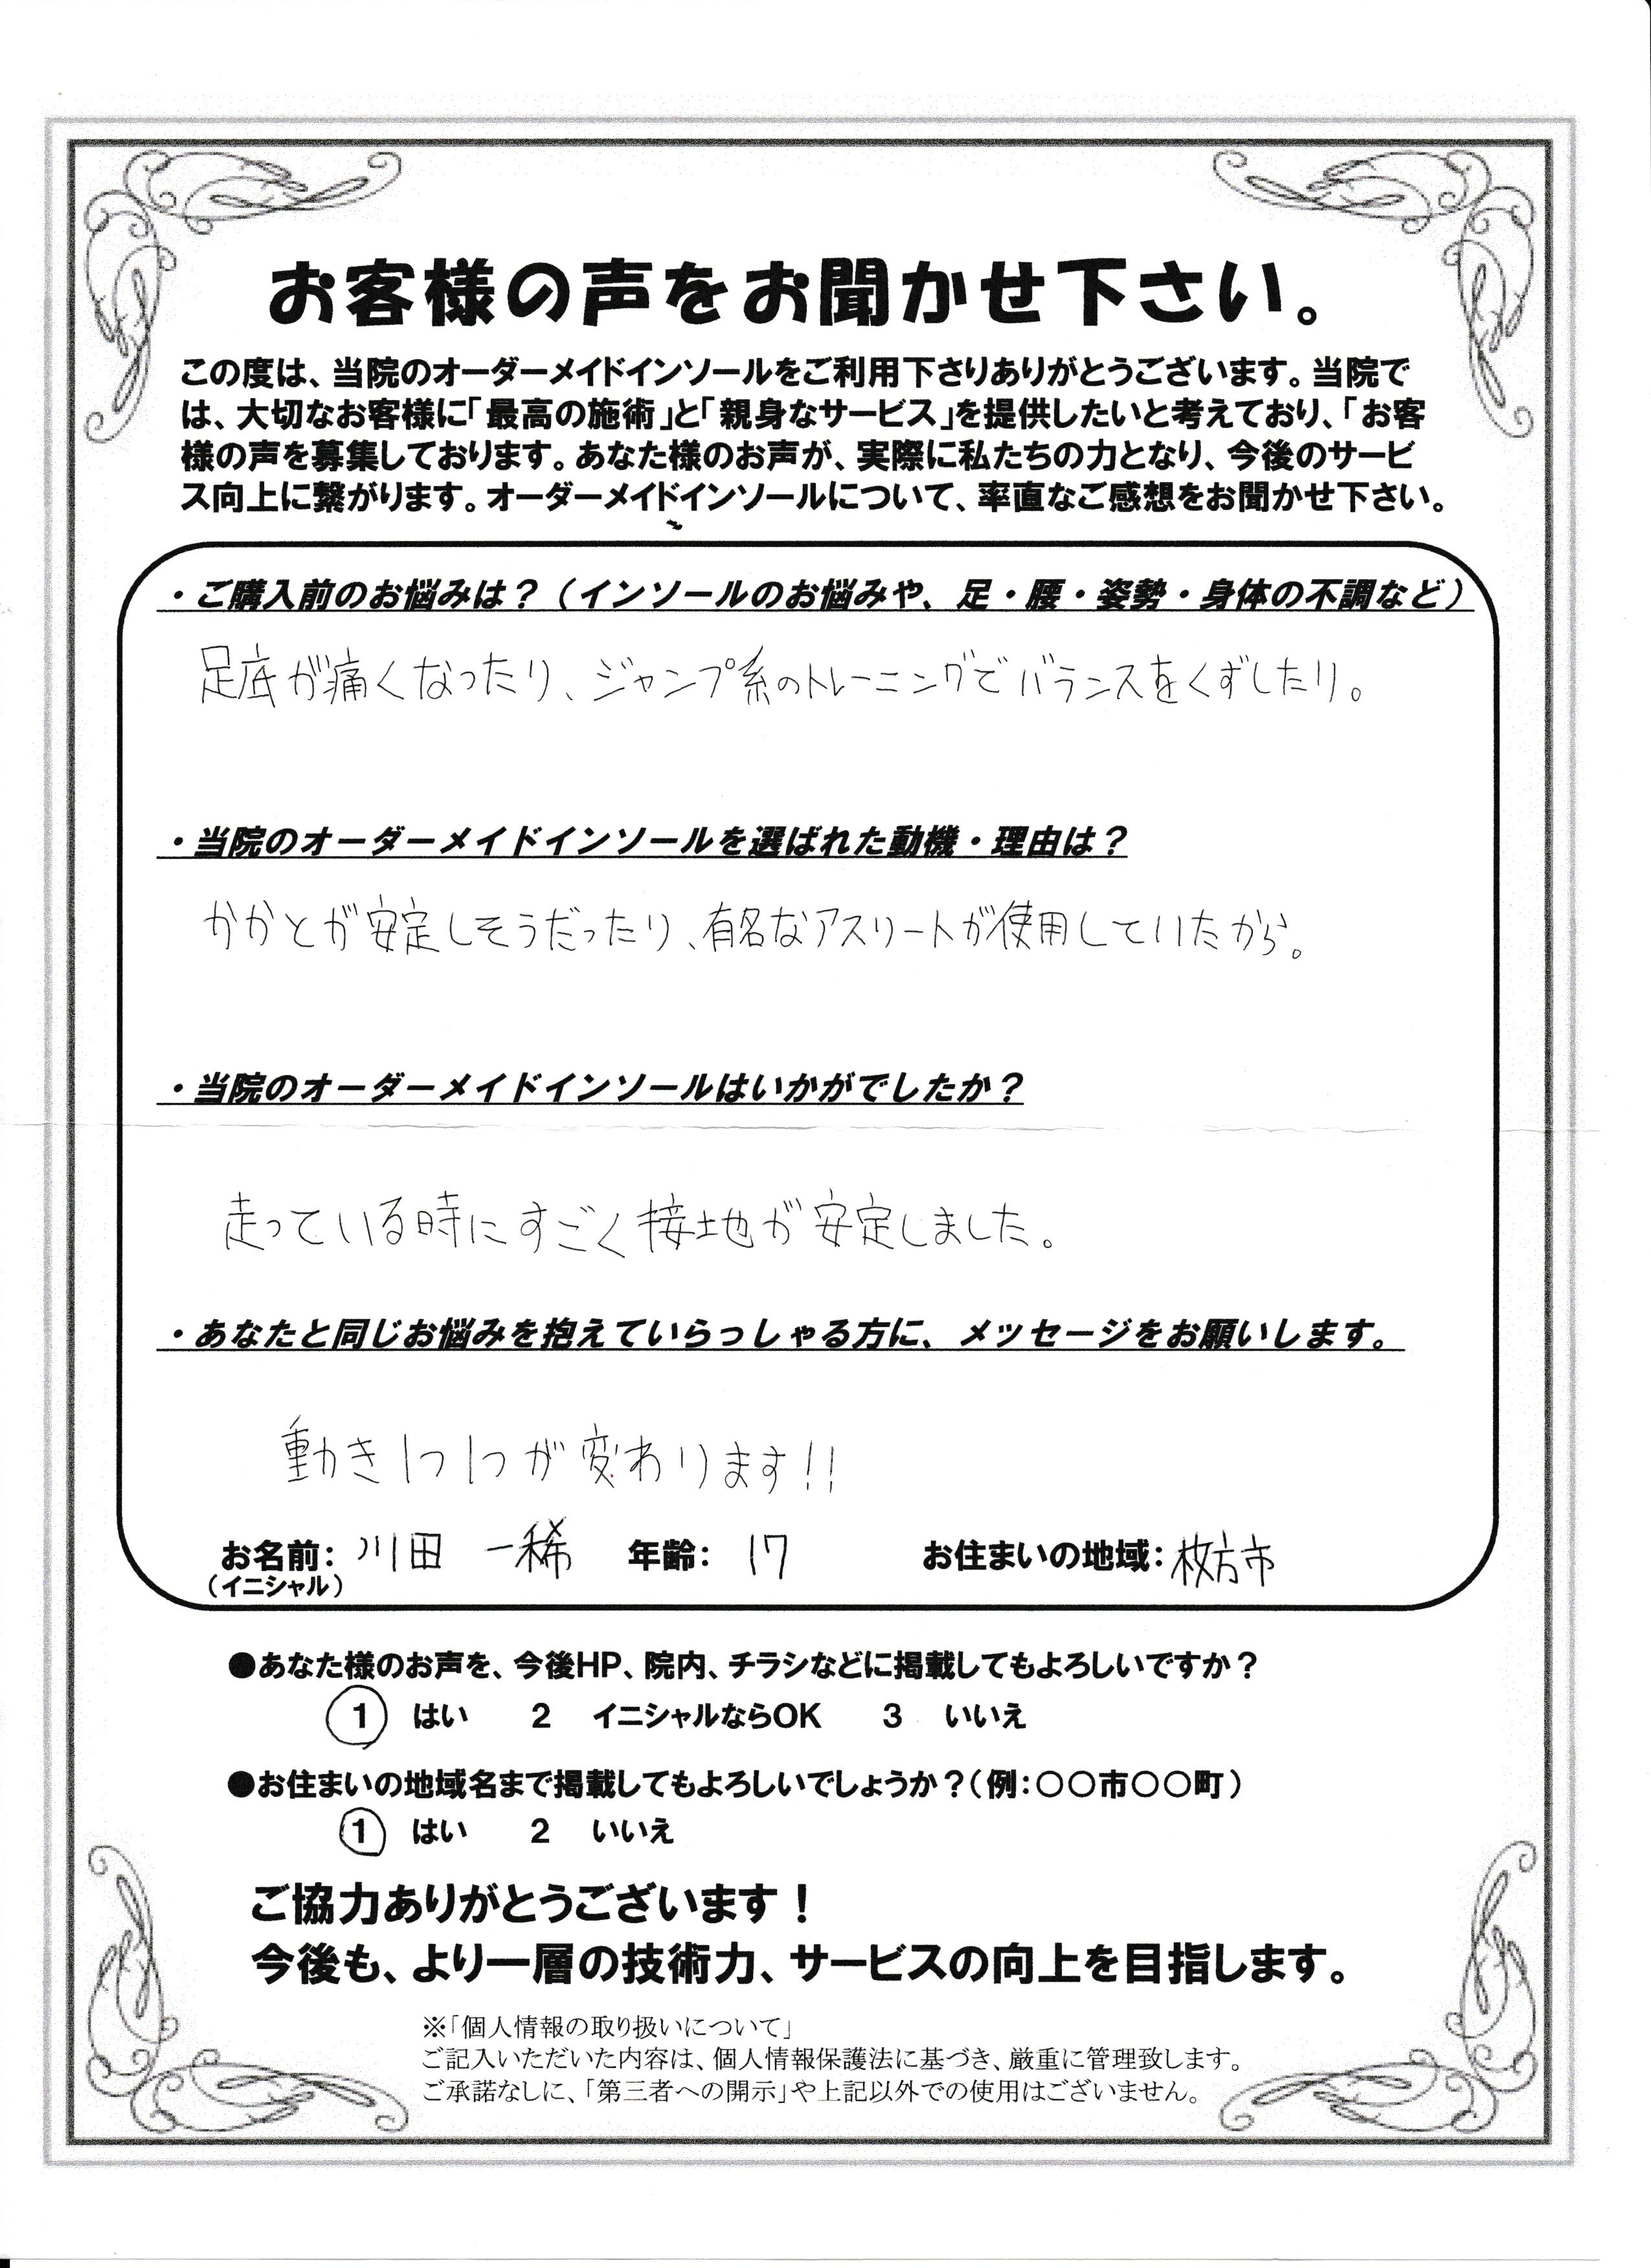 お客様の声をお聞かせ下さい。
この度は、当院のオーダーメイドインソールをご利用下さりありがとうございます。当院で
は、大切なお客様に「最高の施術」と「親身なサービス」を提供したいと考えており、「お客
様の声を募集しております。あなた様のお声が、実際に私たちの力となり、今後のサービ
ス向上に繋がります。オーダーメイドインソールについて、率直なご感想をお聞かせ下さい。
・ご購入前のお悩みは？（インソールのお悩みや、足・腰・姿勢・身体の不調など）
足底が痛くなったり、ジャンプ系のトレーニングでバランスをくずしたり。
・当院のオーダーメイドインソールを選ばれた動機・理由は？
かかとが安定しそうだったり、有名なアスリートが使用していたから。
・当院のオーダーメイドインソールはいかがでしたか？
走っている時にすごく接地が安定しました。
・あなたと同じお悩みを抱えていらっしゃる方に、メッセージをお願いします。
動き1つ1つが変わります!!
お名前： 川田 一稀 年齢： 17 お住まいの地域：枚方市
（イニシャル）
●あなた様のお声を、今後HP、院内、チラシなどに掲載してもよろしいですか？
1 はい 2 イニシャルならOK 3 いいえ
●お住まいの地域名まで掲載してもよろしいでしょうか？（例：〇〇市〇〇町）
1 はい 2 いいえ
ご協力ありがとうございます！
今後も、より一層の技術力、サービスの向上を目指します。
※「個人情報の取り扱いについて」
ご記入いただいた内容は、個人情報保護法に基づき、厳重に管理致します。
ご承諾なしに、「第三者への開示」や上記以外での使用はございません。